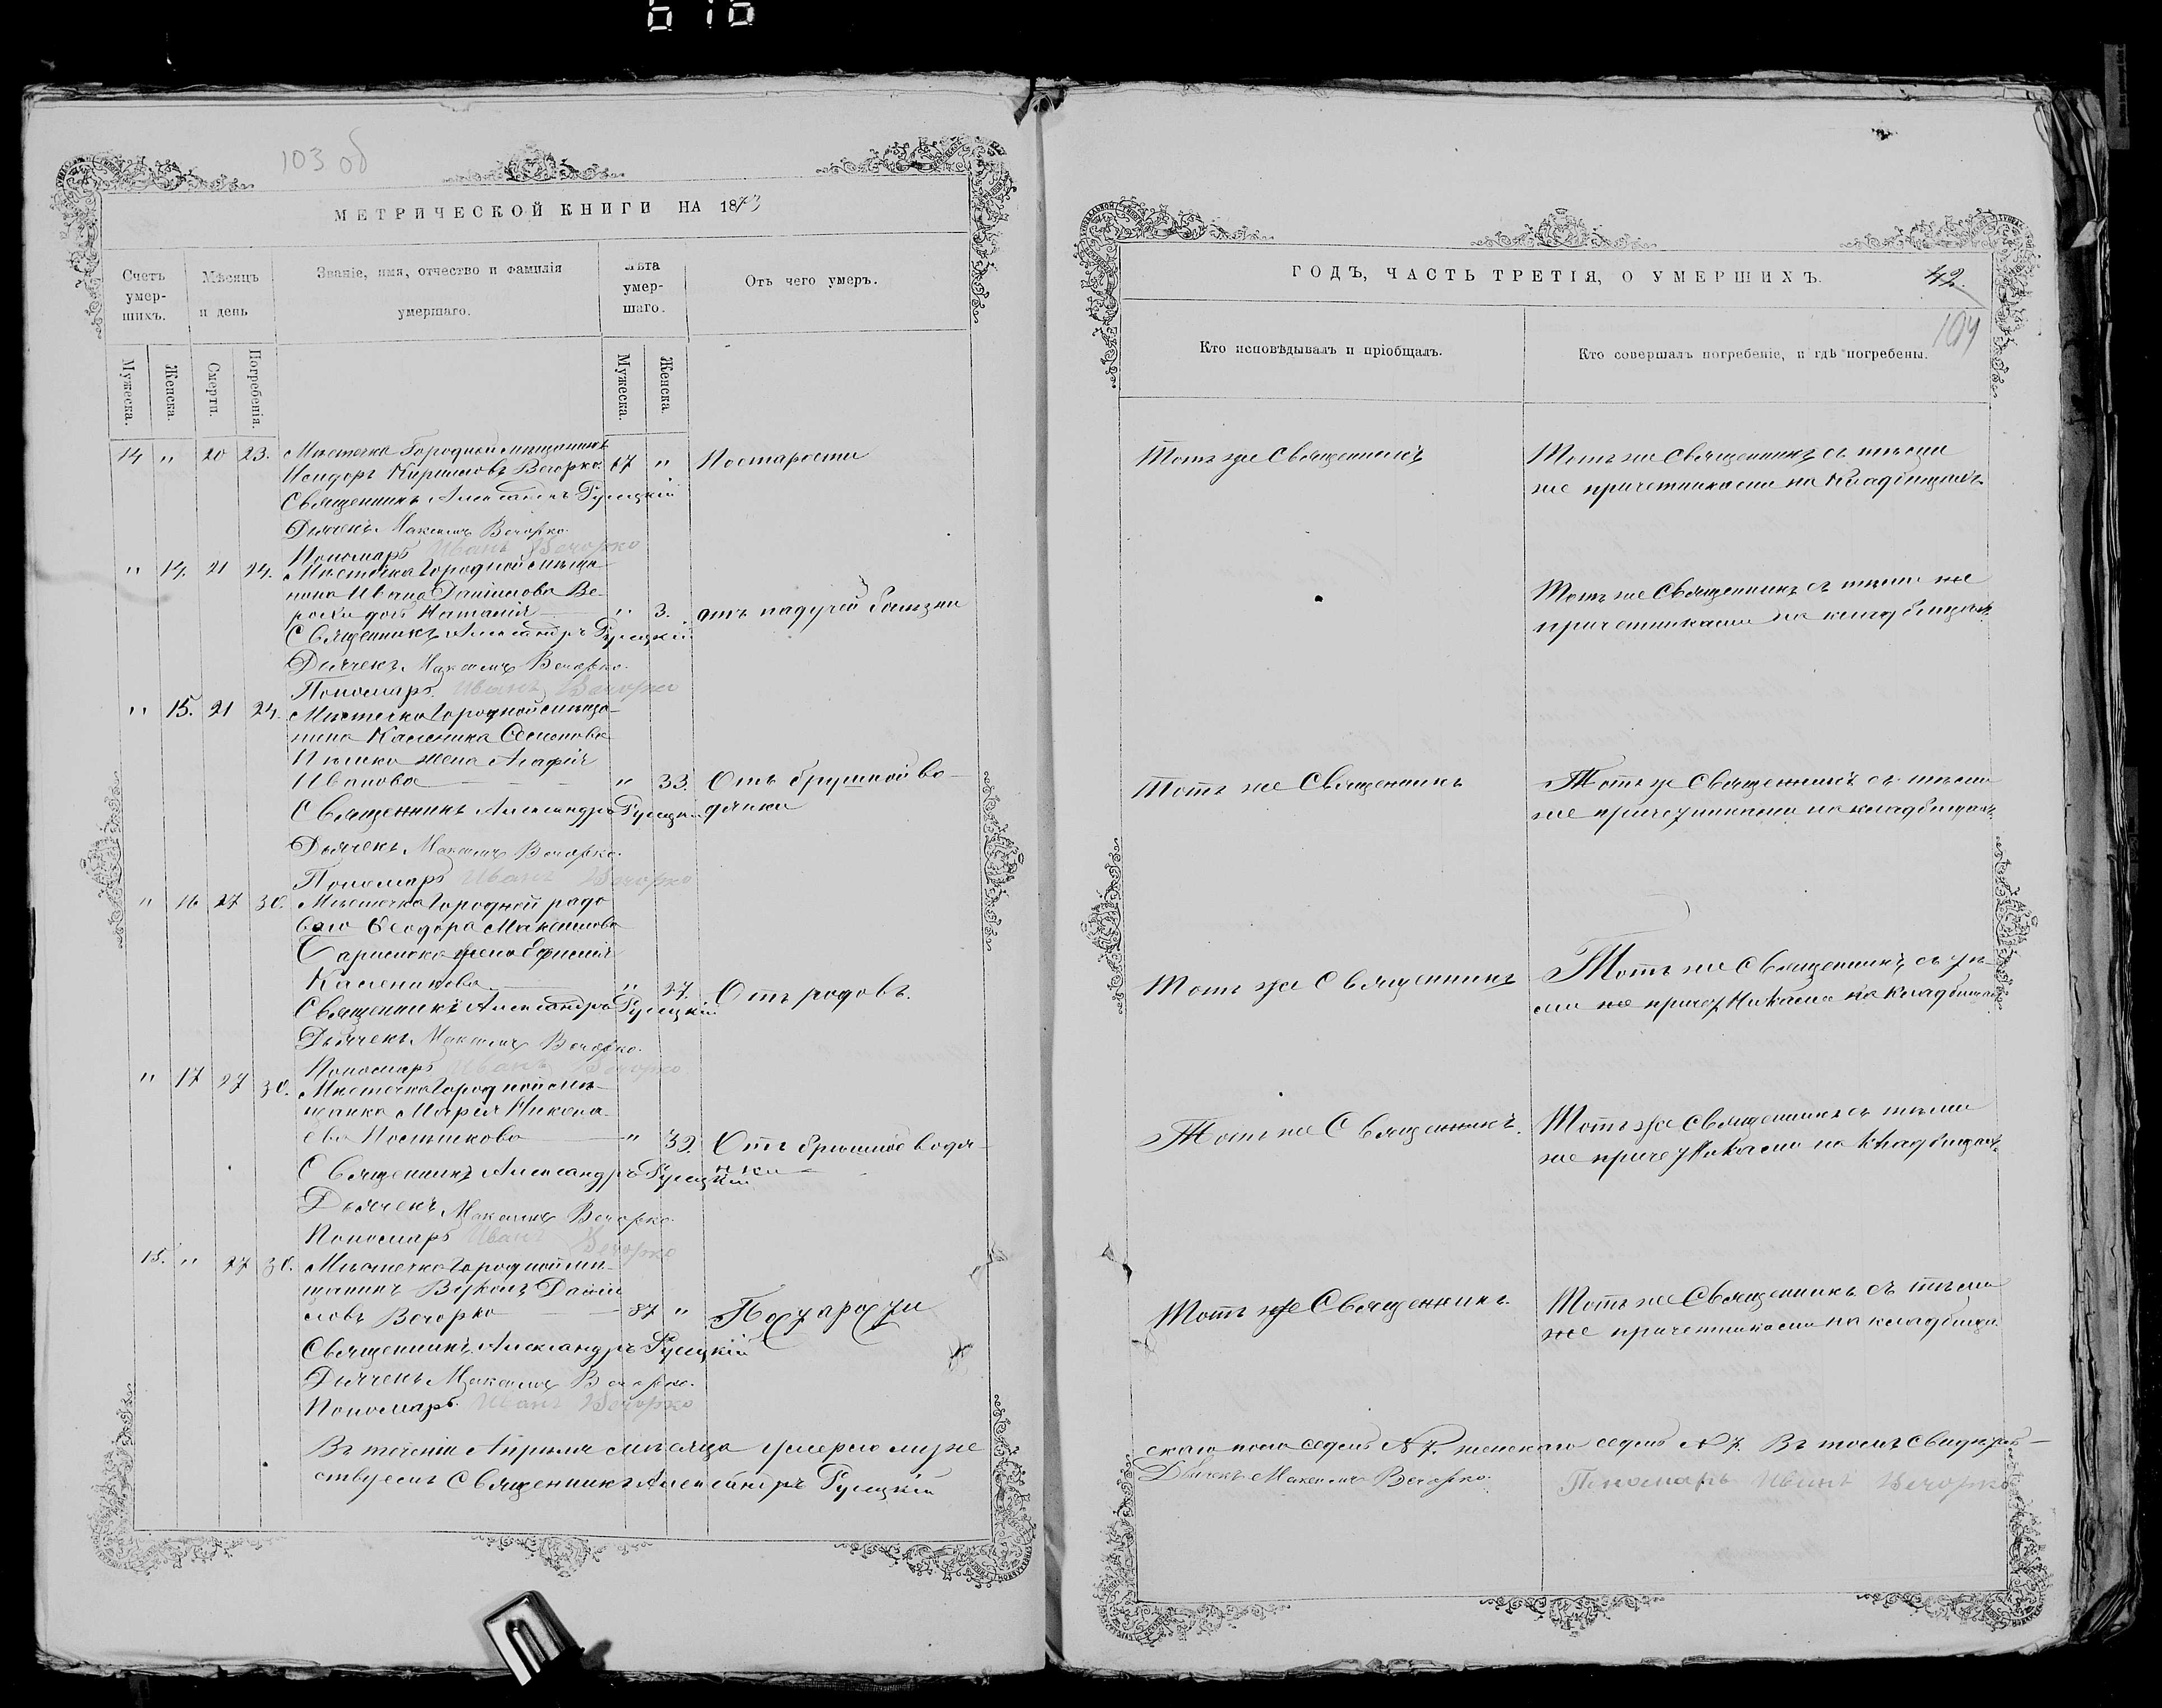 103 об
МЕТРИЧЕСКОЙ КНИГИ НА 1873
Счетъ умер-шихъ.
Мѣсяцъ и день
Званіе, имя, отчество и фамилія умершаго.
Лѣта умер-шаго.
Отъ чего умеръ.
Мужеска. Женска. Смерти. Погребенія. Мужеска. Женска.
14 „ 20 23. Мѣстечка Городной мѣщанинъ
Исидоръ Кириловъ Вечорко 67 „ Постарости
Священникъ Александръ Рулицкій
Дьячекъ Максимъ Вечорко.
Пономарь Иванъ Вечорко
„ 14. 21 24. Мѣстечка Городной мѣща-
нина Ивана Даніилова Ве-
рохи дочь Наталія „ 3. отъ падучей болѣзни
Священникъ Александръ Рулицкій
Дьячекъ Максимъ Вечорко.
Пономарь Иванъ Вечорко
„ 15. 21 24. Мѣстечка Городной мѣща-
нина Каленика
жена Агафія
Иванова „ 33. Отъ брушной во-
дянки
Священникъ Александръ Рулицкій
Дьячекъ Максимъ Вечорко.
Пономарь Иванъ Вечорко
„ 16 27 30. Мѣстечка Городной рядо
ваго Ѳеодора
жена Ефимія
Каленикова „ 27. Отъ родовъ.
Священникъ Александръ Рулицкій
Дьячекъ Максимъ Вечорко.
Пономарь Иванъ Вечорко
„ 17 27 30. Мѣстечка Городной мѣ-
щанка Марія Никола-
ева „ 39. Отъ брюшной водя-
нки
Священникъ Александръ Рулицкій
Дьячекъ Максимъ Вечорко.
Пономарь Иванъ Вечорко
15. „ 27 30. Мѣстечка Городной мѣ-
щанинъ Вуколъ Даніи
ловъ Вечорко 87 „ Постарости
Священникъ Александръ Рулицкій
Дьячекъ Максимъ Вечорко.
Пономарь Иванъ Вечорко
Въ теченіи Апрѣля мѣсяца умерло муже
ствуемъ Священникъ Александръ Рулицкій
ГОДЪ, ЧАСТЬ ТРЕТІЯ, О УМЕРШИХЪ.
42.
104
Кто исповѣдывалъ и пріобщалъ.
Кто совершалъ погребеніе, и гдѣ погребены.
Тотъ же Священникъ
Тотъ же Священникъ съ тѣми
же причетниками на кладбищахъ.
Тотъ же Священникъ съ тѣми же
причетниками на кладбищахъ.
Тотъ же Священникъ
Тотъ же Священникъ съ тѣми
же причетниками на кладбищахъ.
Тотъ же Священникъ
Тотъ же Священникъ, съ тѣ-
ми же причетниками на кладбищахъ
Тотъ же Священникъ.
Тотъ же Священникъ съ тѣми
же причетниками на кладбищахъ.
Тотъ же Священникъ.
Тотъ же Священникъ съ тѣми
же причетниками на кладбищахъ
скаго пола седмь № 7. женскаго седмь № 7. Въ томъ свидѣтель-
Дьячекъ Максимъ Вечорко.
Пономарь Иванъ Вечорко